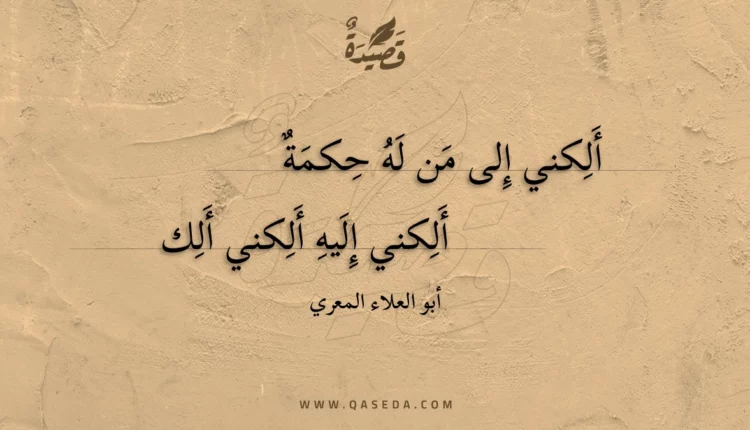 قَصِيدَةٌ
أَلِكني إِلى مَن لَهُ حِكمَةٌ
أَلِكني إِلَيهِ أَلِكني أَلِك
أبو العلاء المعري
WWW.QASEDA.COM